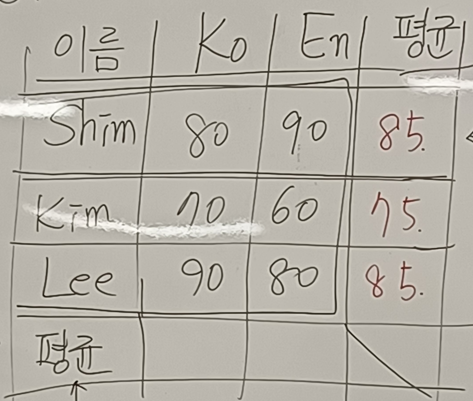 이름 Ko En 평균
Shim 80 90 85.
Kim 70 60 75.
Lee 90 80 85.
평균